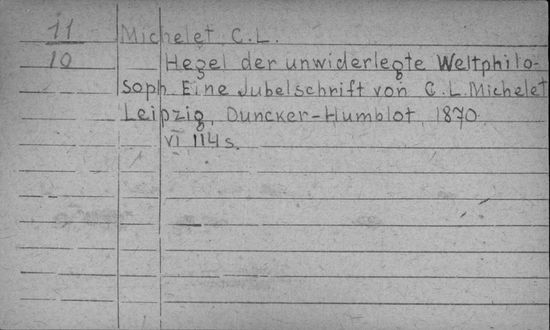 11
10
Michelet, C.L.
Hegel der unwiderlegte Weltphilo-
soph. Eine Jubelschrift von C.L. Michelet
Leipzig, Duncker-Humblot, 1870.
VI, 114 s.